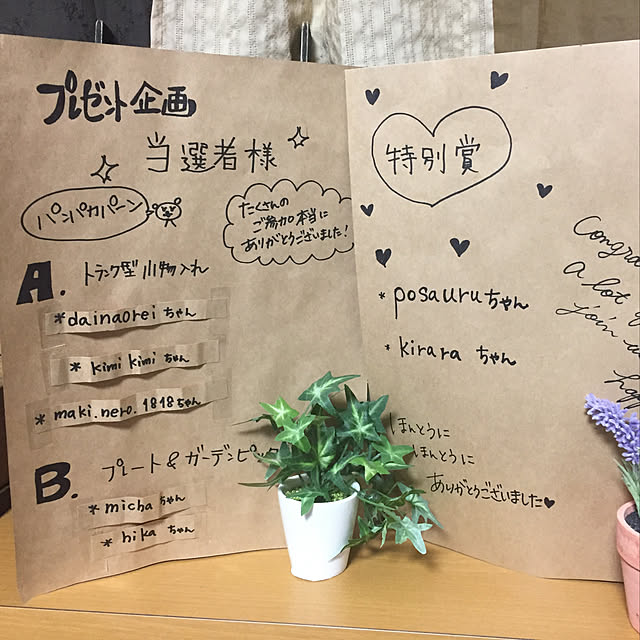 プレゼント企画
当選者様
パンパカパーン
たくさんの
ご参加本当に
ありがとうございました!
A. トランク型小物入れ
*dainaoreiちゃん
*kimikimiちゃん
*maki.nero.1818ちゃん
B. プレート&ガーデンピック
*michaちゃん
*hikaちゃん
特別賞
*posauruちゃん
*kiraraちゃん
ほんとうに
ほんとうに
ありがとうございました♥
Congra
A lot
join